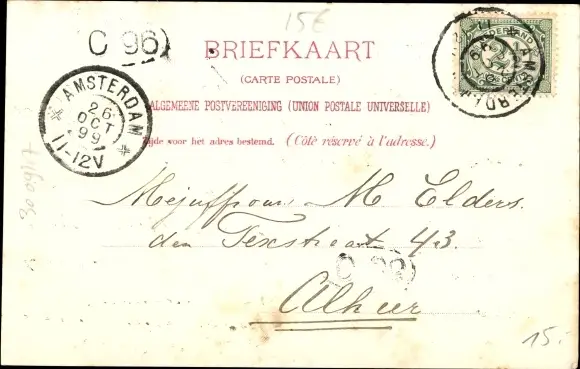 15€
C 96
BRIEFKAART
(CARTE POSTALE)
ALGEMEENE POSTVEREENIGING (UNION POSTALE UNIVERSELLE)
Zijde voor het adres bestemd. (Côté réservé à l'adresse.)
NEDERLAND
AMSTERDAM
26
OCT
99
11-12V
Mejuffrouw M Elders.
den Texstraat 43.
C 96
Alhier
15.-